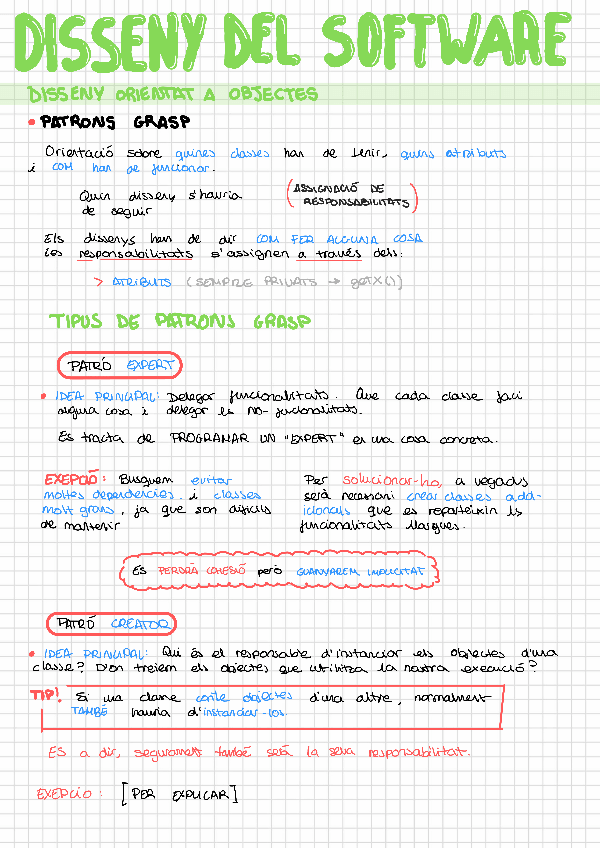 DISSENY DEL SOFTWARE
DISSENY ORIENTAT A OBJECTES
• PATRONS GRASP
Orientació sobre quines classes han de tenir, quins atributs
i COM han de funcionar.
Quin disseny s'hauria
de seguir
(ASSIGNACIÓ DE
RESPONSABILITATS)
Els dissenys han de dir COM FER ALGUNA COSA
Les responsabilitats s'assignen a través dels:
> ATRIBUTS (SEMPRE PRIVATS → getX())
TIPUS DE PATRONS GRASP
PATRÓ EXPERT
• IDEA PRINCIPAL: Delegar funcionalitats. Que cada classe faci
alguna cosa i delegar les no-funcionalitats.
Es tracta de PROGRAMAR UN "EXPERT" en una cosa concreta.
EXEPCIÓ: Busquem evitar
moltes dependències i classes
molt grans, ja que son difícils
de mantenir
Per solucionar-ho, a vegades
serà necessari crear classes add-
icionals que es reparteixin les
funcionalitats llargues.
ES PERDRÀ COHESIÓ però GUANYAREM SIMPLICITAT
PATRÓ CREATOR
• IDEA PRINCIPAL: Qui és el responsable d'instanciar els objectes d'una
classe? D'on treiem els objectes que utilitza la nostra execució?
TIP! Si una classe conté objectes d'una altre, normalment
TAMBÉ hauria d'instanciar-los.
ES a dir, segurament també serà la seva responsabilitat.
EXEPCIÓ: [PER EXPLICAR]